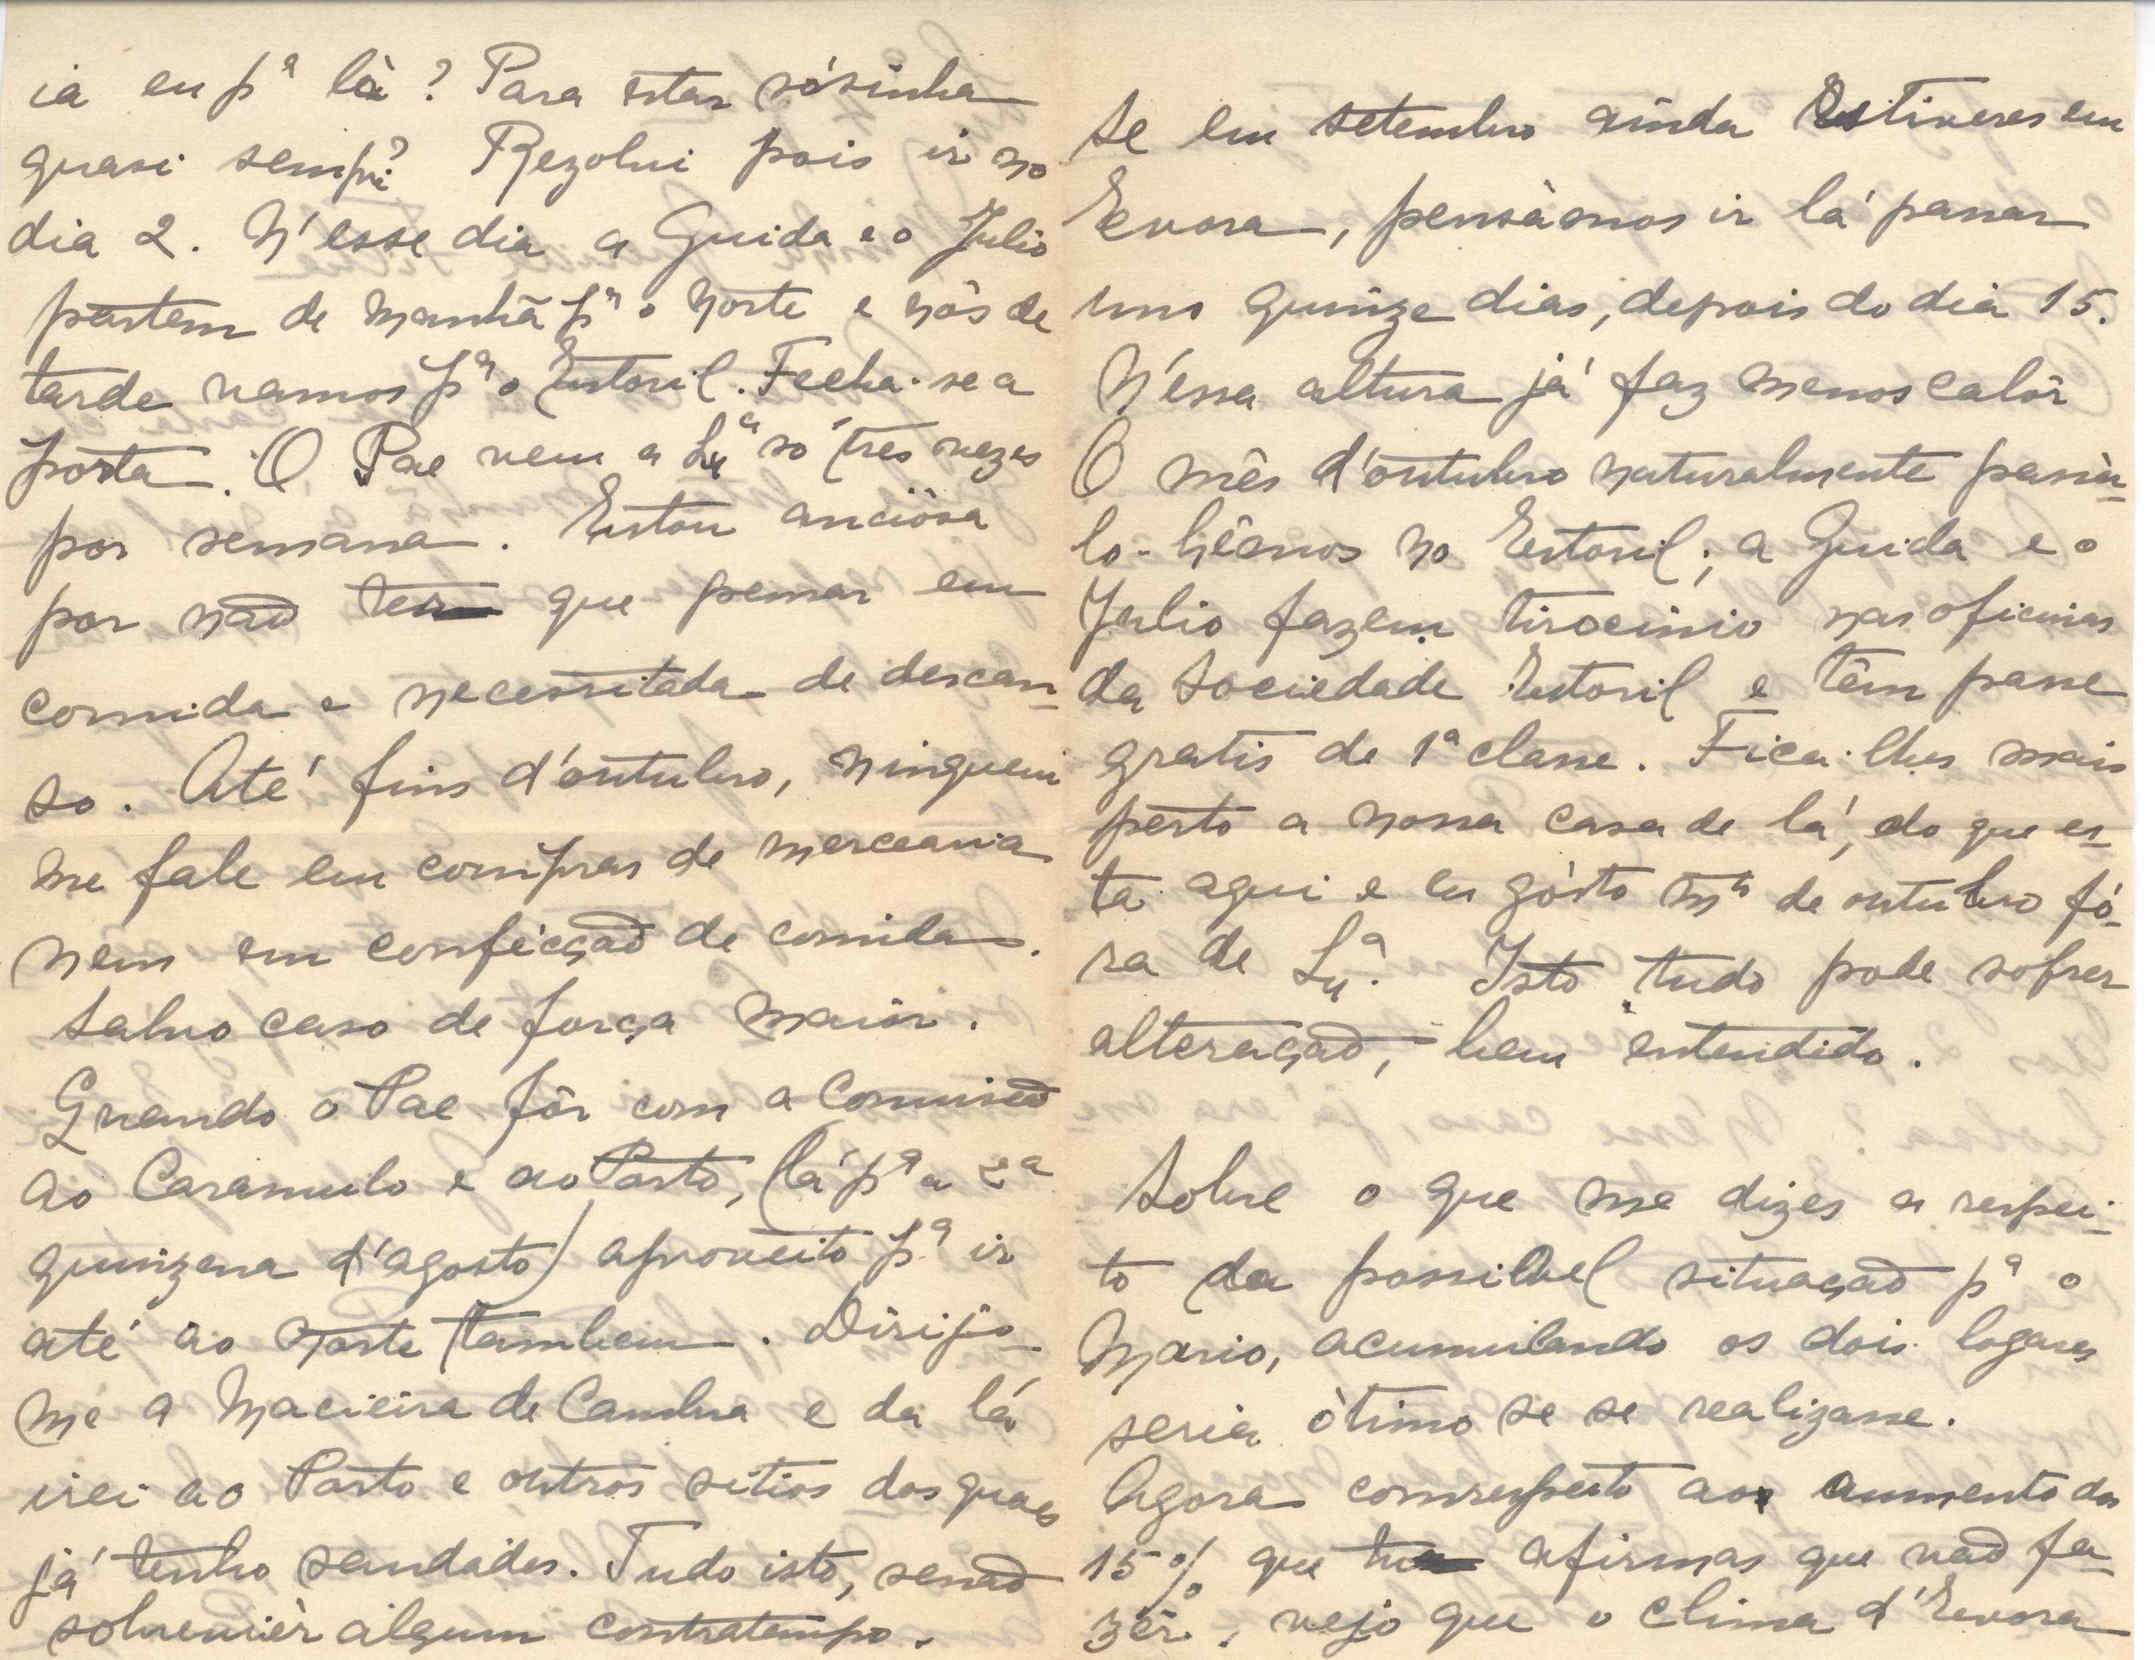 ia eu pª là? Para estar sósinha
quasi sempre? Rezolvi pois ir no
dia 2. N'esse dia a Guida e o Julio
partem de manhã pª o Norte e nós de
tarde vamos pª o Estoril. Fecha-se a
porta. O Pae vem a Lxª só tres vezes
por semana. Estou anciósa
por não ter que pensar em
comida e necessitada de descan-
so. Até fins d'outubro, ninguem
me fale em compras de mercearia
nem em confécção de comidas.
Salvo caso de força maior.
Quando o Pae fôr com a Comissão
ao Caramulo e ao Porto, (lá pª a 2ª
quinzena d'agosto) aproveito pª ir
até ao Norte tambem. Dirijo-
me a Macieira de Cambra e da lá
irei ao Porto e outros sitios dos quaes
já tenho saudades. Tudo isto, senão
sobreviér algum contratempo.
Se em setembro ainda Estiveres em
Evora, pensàmos ir lá passar
uns quinze dias, depois do dia 15.
N'essa altura já faz menos calôr
O mês d'outubro naturalmente passà-
lo-hêmos no Estoril; a Guida e o
Julio fazem tirocinio nas oficinas
da Sociedade Estoril e têm passe
gratis de 1ª classe. Fica-lhes mais
perto a nossa casa de lá, do que es-
ta aqui e eu gósto mtº de outubro fó-
ra de Lxª. Isto tudo pode sofrer
alteração, bem entendido.
Sobre o que me dizes a respei-
to da possivel situação pª o
Mario, acumulando os dois logares
seria òtimo se se realizasse.
Agora com respeito ao aumento dos
15% que tu afirmas que não fa-
zêr, vejo que o clima d'Evora